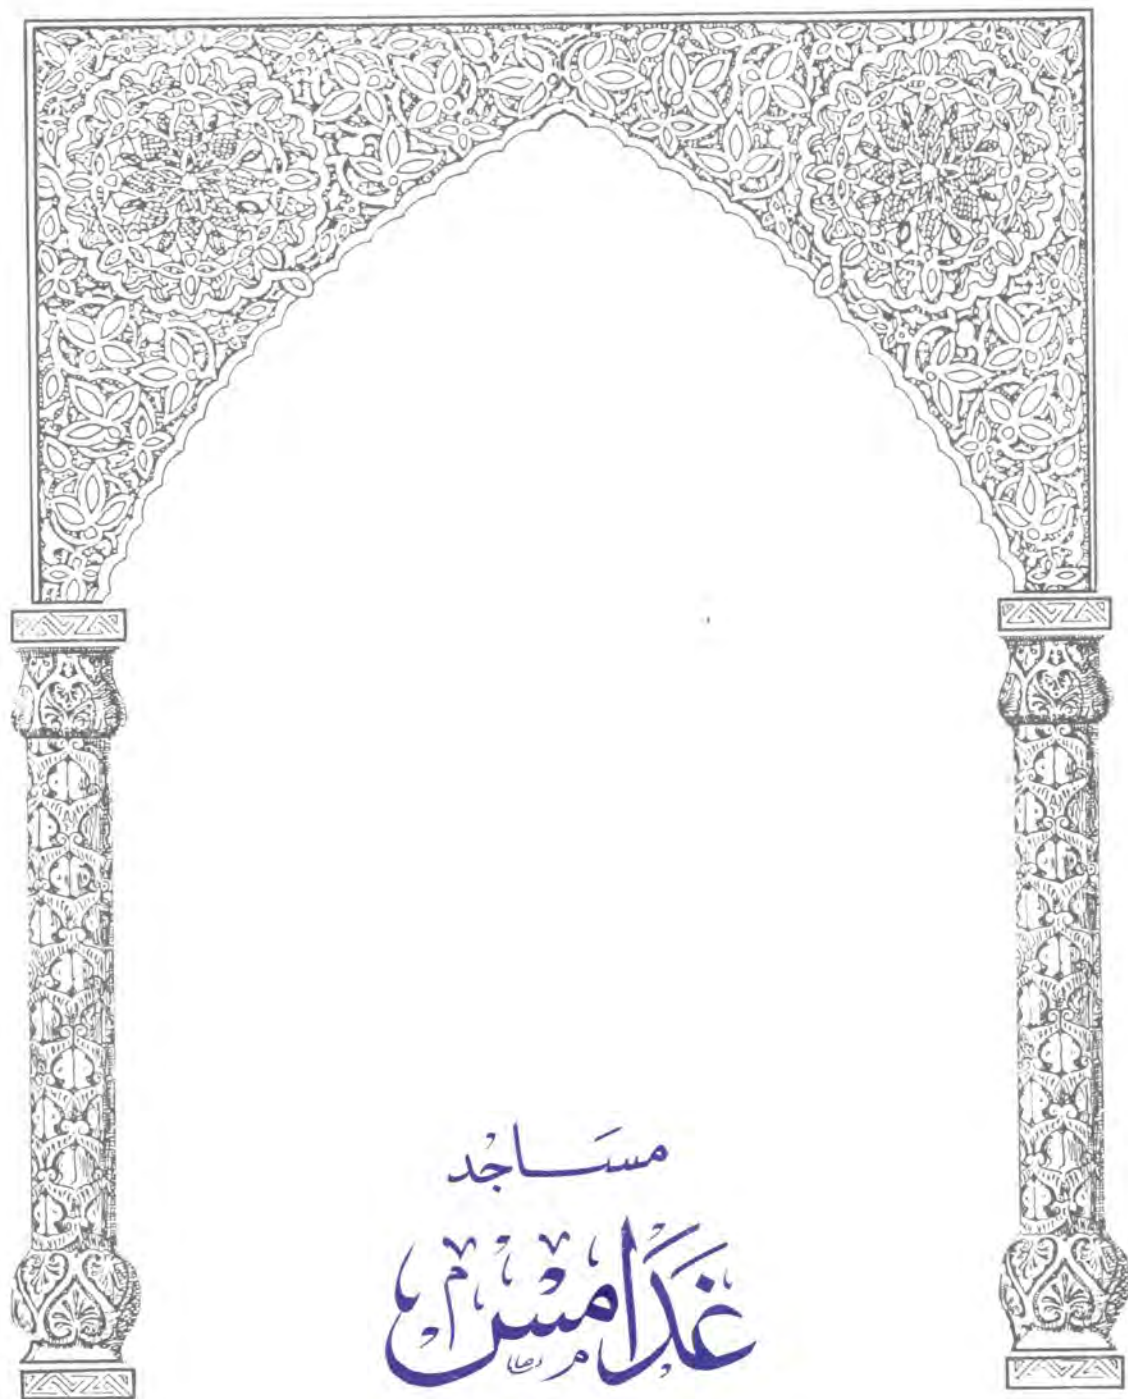 مسَاجْد
غَدَامْس